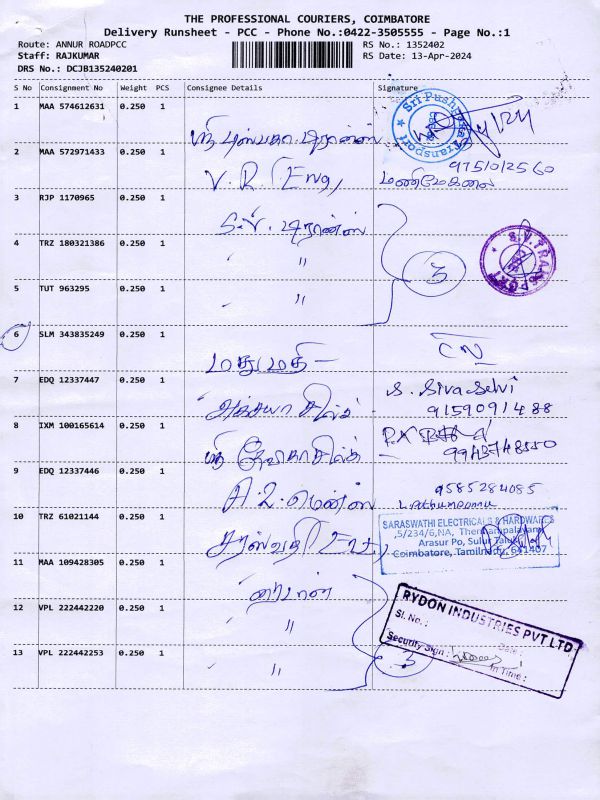 THE PROFESSIONAL COURIERS, COIMBATORE
Delivery Runsheet - PCC - Phone No.:0422-3505555 - Page No.:1
Route: ANNUR ROADPCC
RS No.: 1352402
Staff: RAJKUMAR
RS Date: 13-Apr-2024
DRS No.: DCJB135240201
S No Consignment No Weight PCS Consignee Details Signature
1 MAA 574612631 0.250 1
ஸ்ரீ புஷ்பகா டிரான்ஸ்
Sri Pushpaka Transport
2 MAA 572971433 0.250 1
V. R. Eng,
9751012560
மணிமேகலை
3 RJP 1170965 0.250 1
S.V. டிரான்ஸ்
4 TRZ 180321386 0.250 1
"
3
S.V. TRANSPORT
5 TUT 963295 0.250 1
"
6 SLM 343835249 0.250 1
மதுமதி
7 EDQ 12337447 0.250 1
அக்சயா சில்க்
S. Sivaselvi
9159091488
8 IXM 100165614 0.250 1
ஸ்ரீ தேவிகா சில்க்
9943748550
9 EDQ 12337446 0.250 1
A.R. மென்ஸ்
9585284085
10 TRZ 61021144 0.250 1
சரஸ்வதி
SARASWATHI ELECTRICALS & HARDWARES
,5/234/6,NA,
Arasur Po, Sulur Taluk
Coimbatore, Tamilnadu, 641407
11 MAA 109428305 0.250 1
12 VPL 222442220 0.250 1
"
RYDON INDUSTRIES PVT LTD
Sl. No.:
Date:
Security Sign:
In Time:
13 VPL 222442253 0.250 1
"
3